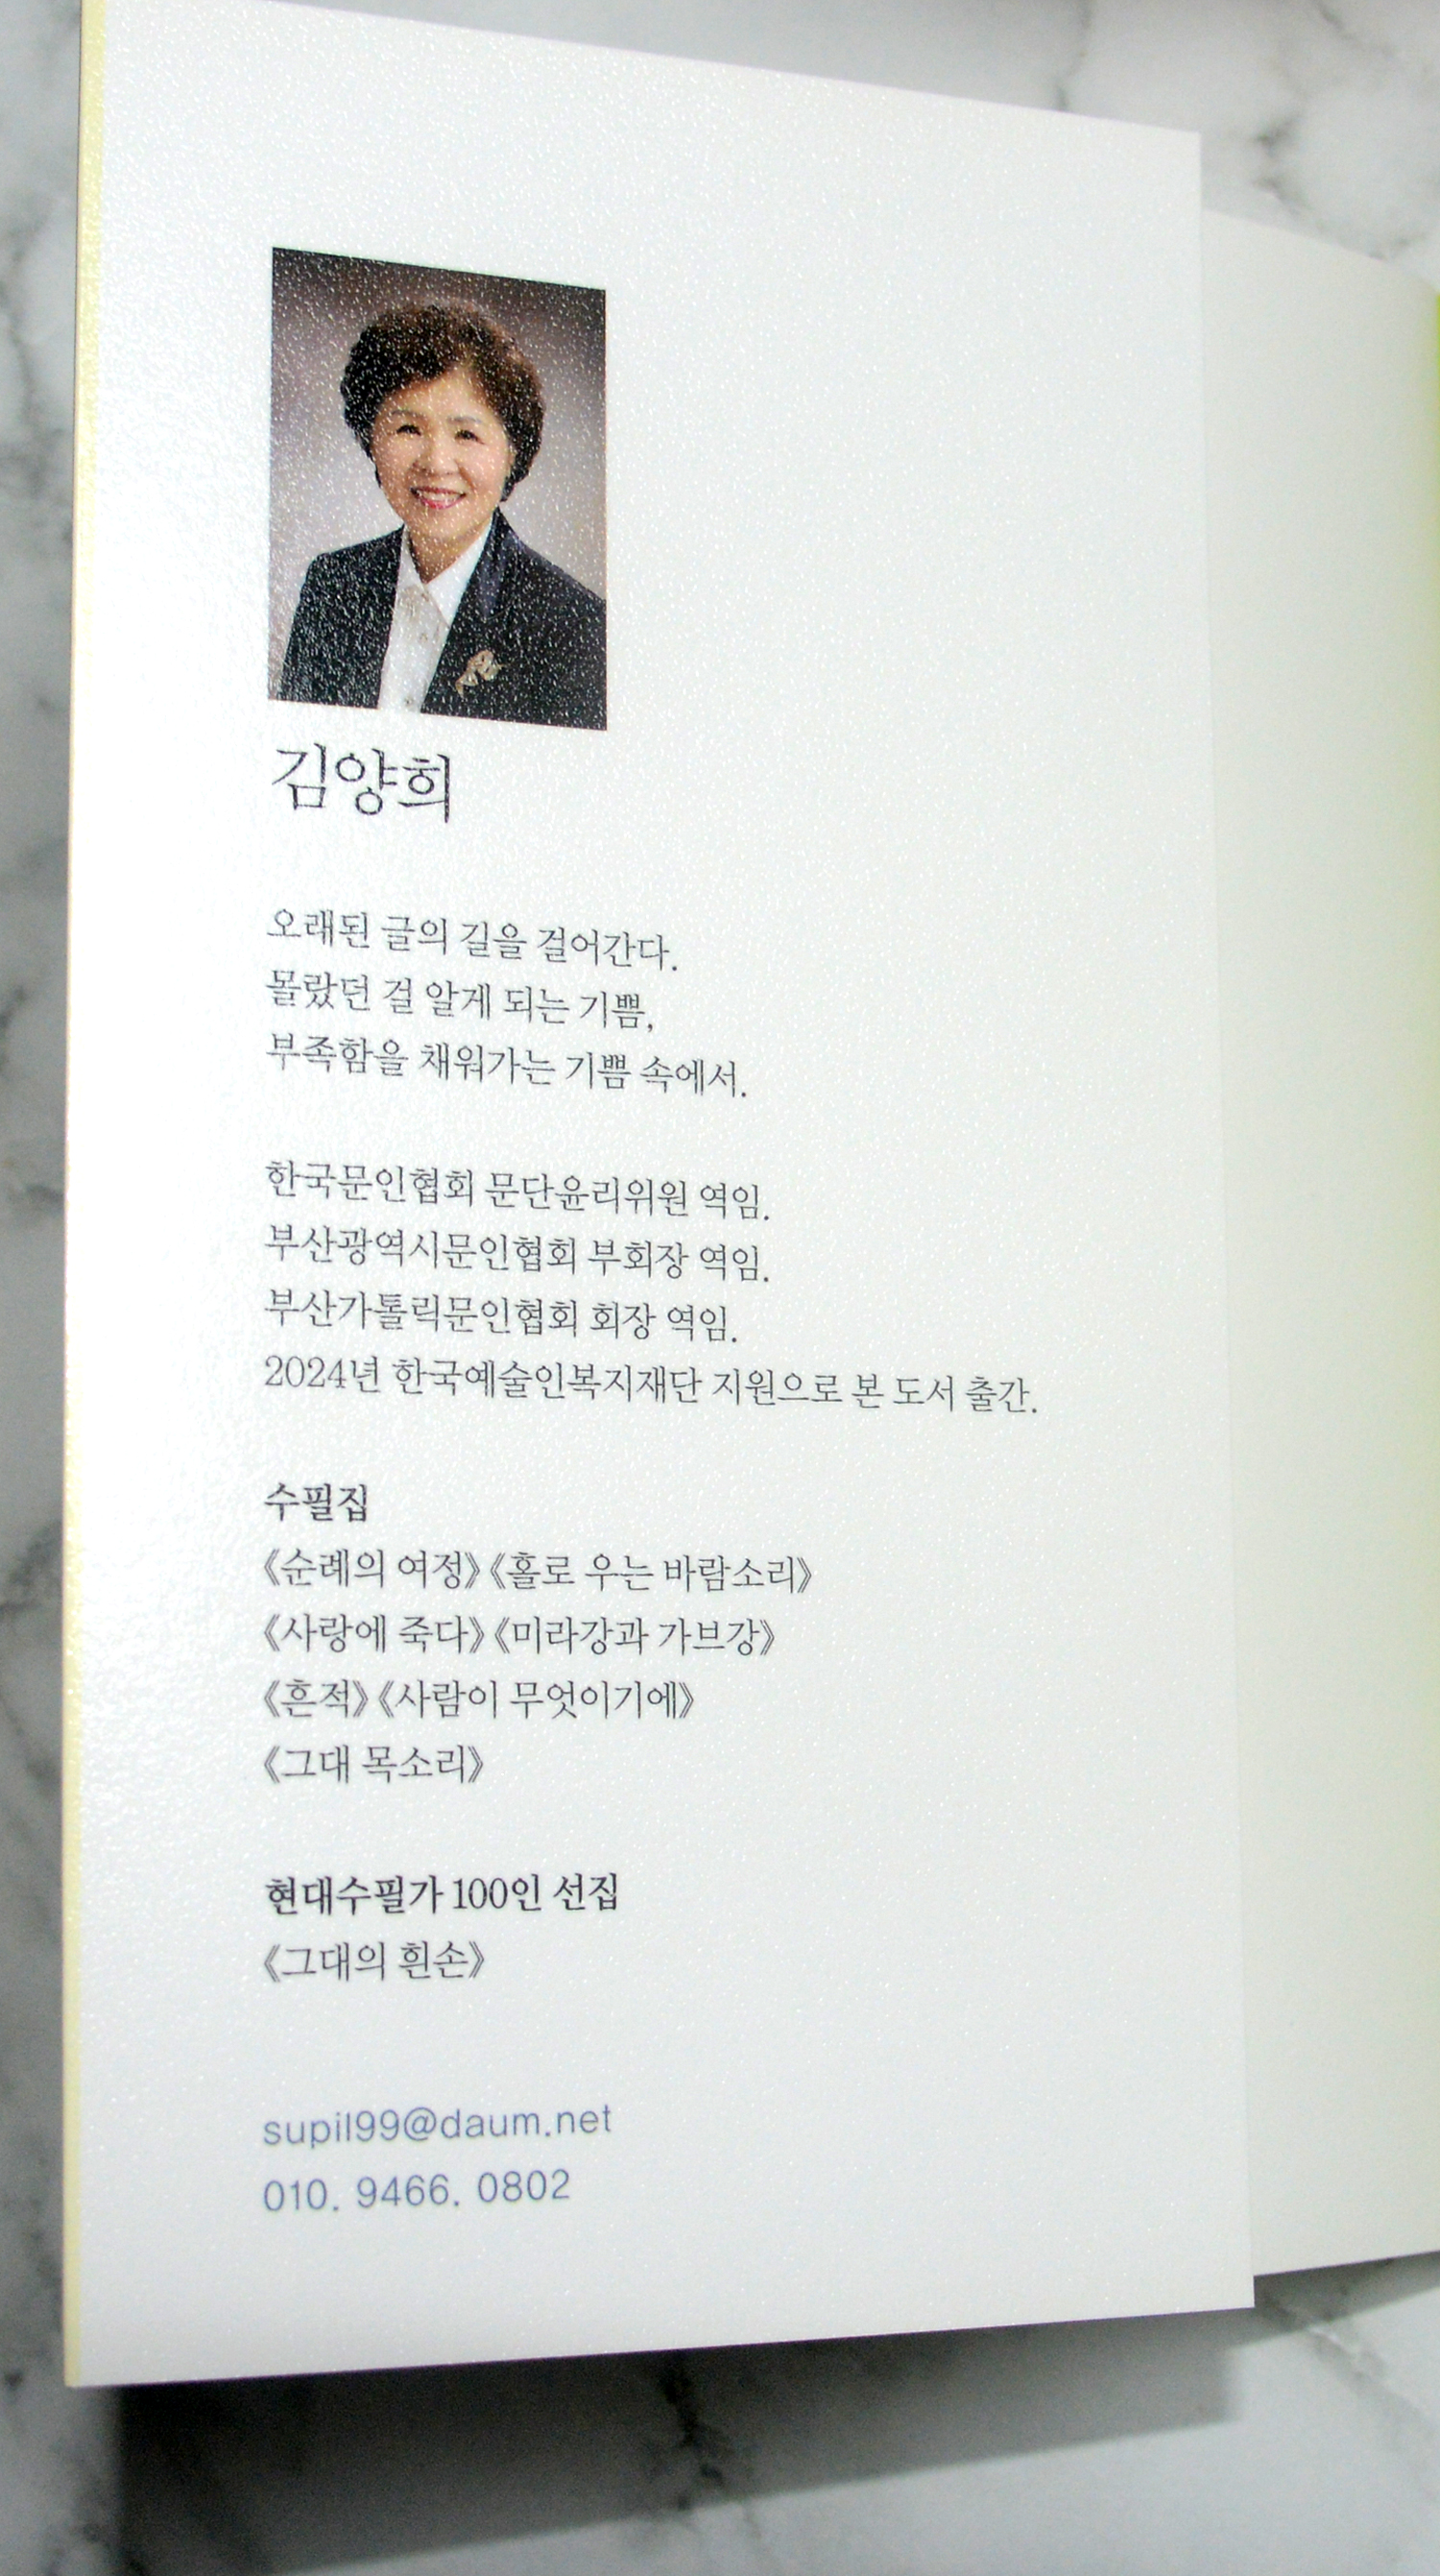 김양희
오래된 글의 길을 걸어간다.
몰랐던 걸 알게 되는 기쁨,
부족함을 채워가는 기쁨 속에서.
한국문인협회 문단윤리위원 역임.
부산광역시문인협회 부회장 역임.
부산가톨릭문인협회 회장 역임.
2024년 한국예술인복지재단 지원으로 본 도서 출간.
수필집
《순례의 여정》《홀로 우는 바람소리》
《사랑에 죽다》《미라강과 가브강》
《흔적》《사람이 무엇이기에》
《그대 목소리》
현대수필가 100인 선집
《그대의 흰손》
supil99@daum.net
010. 9466. 0802